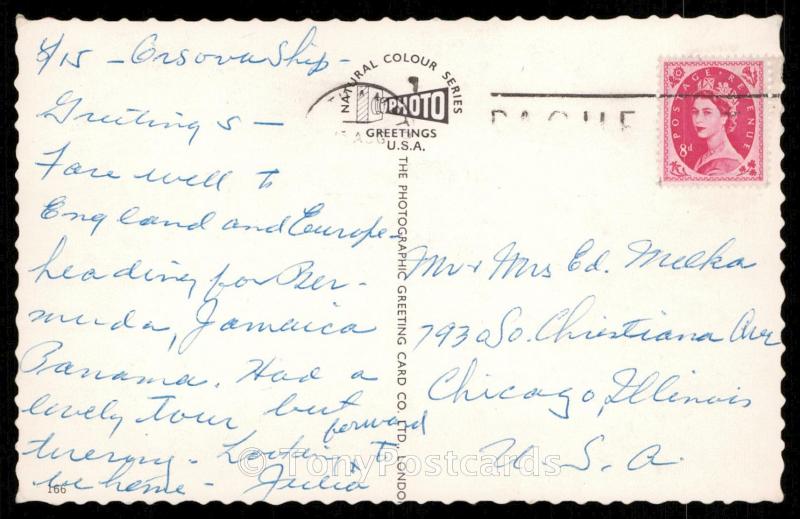 8/15 - Orsova Ship -
Greetings -
Farewell to
England and Europe -
heading for Ber-
muda, Jamaica
Panama. Had a
lovely tour but
tireing - Lookin forward to
home - Julia
166
NATURAL COLOUR SERIES
PHOTO
GREETINGS
U.S.A.
AUG
PAQUE
POSTAGE REVENUE
8d
THE PHOTOGRAPHIC GREETING CARD CO., LTD., LONDON
Mr + Mrs Ed. Melka
793 So. Christiana Ave
Chicago, Illinois
U. S. A.
© TonyPostcards